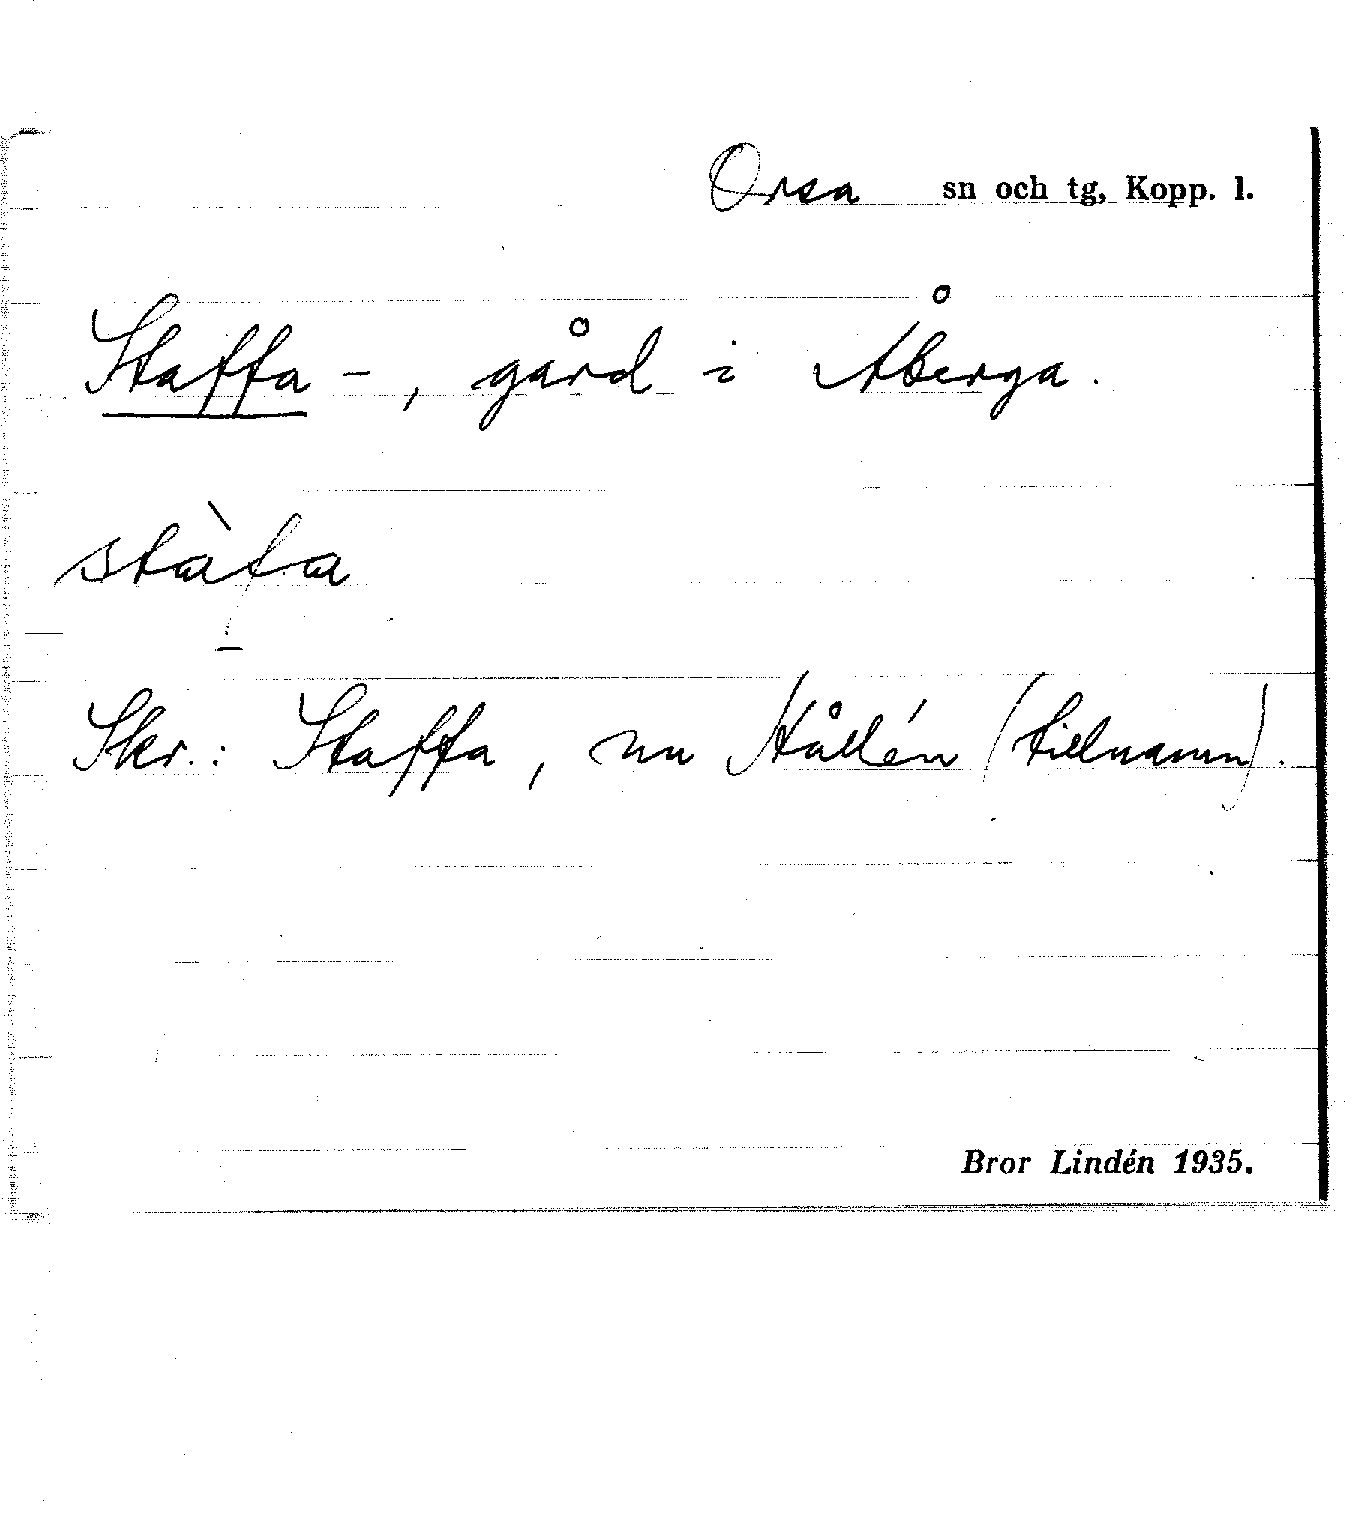 Orsa sn och tg, Kopp. l.
Staffa -, gård i Åberga.
stàfa
Skr.: Staffa, nu Hållén (tillnamn).
Bror Lindén 1935.